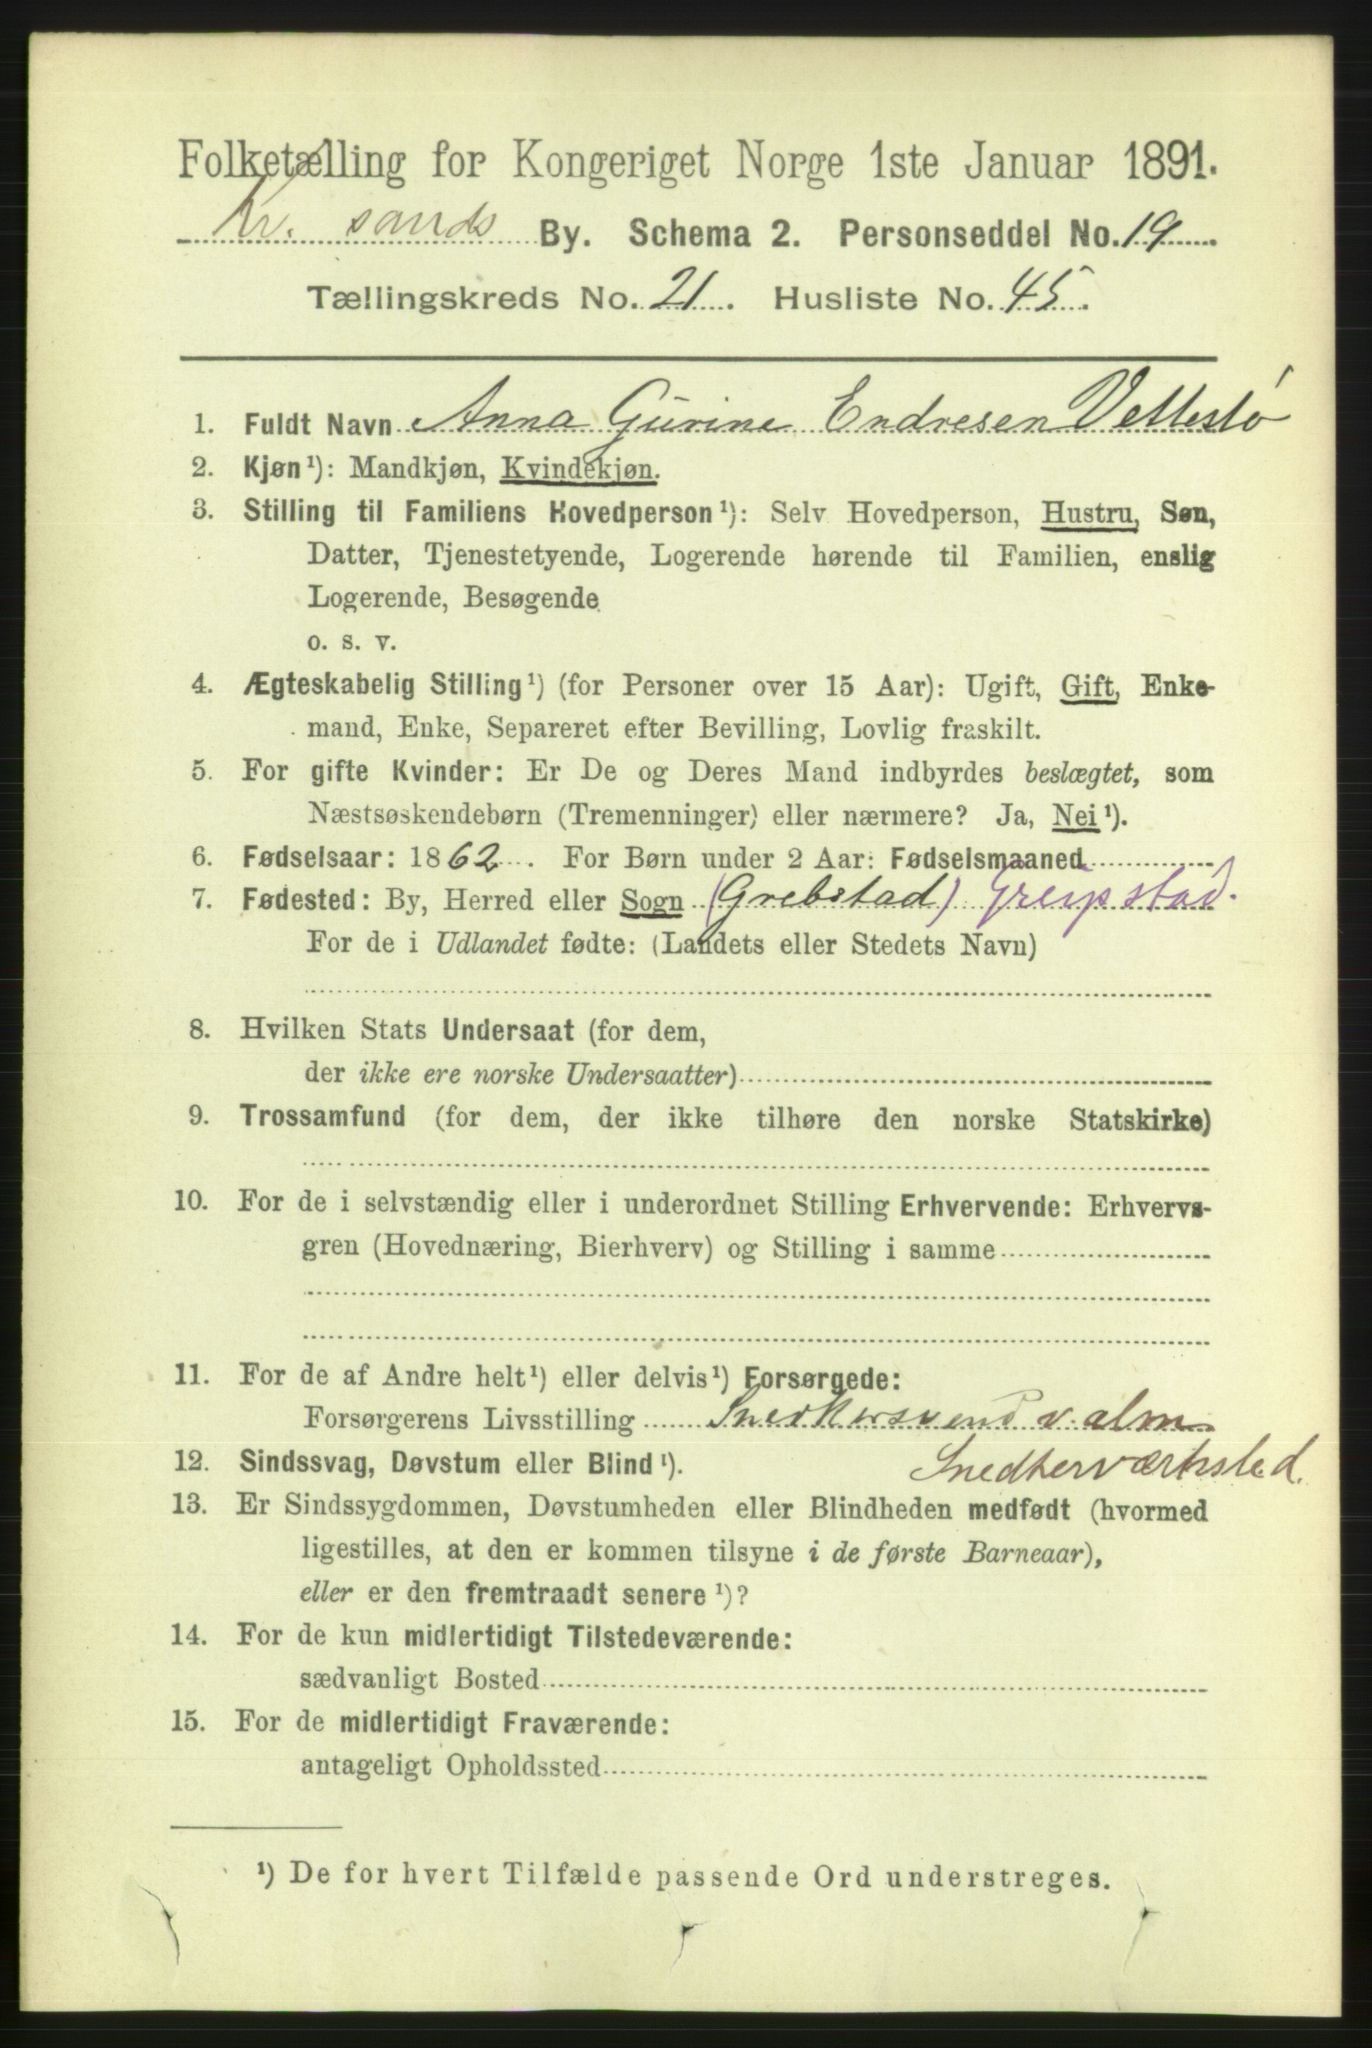 Folketælling for Kongeriget Norge 1ste Januar 1891.
Kr. sands By. Schema 2. Personseddel No. 19
Tællingskreds No. 21. Husliste No. 45.
1. Fuldt Navn Anna Gurine Endresen Vetteslø
2. Kjøn¹): Mandkjøn, Kvindekjøn.
3. Stilling til Familiens Hovedperson¹): Selv Hovedperson, Hustru, Søn,
Datter, Tjenestetyende, Logerende hørende til Familien, enslig
Logerende, Besøgende
o. s. v.
4. Ægteskabelig Stilling¹) (for Personer over 15 Aar): Ugift, Gift, Enke-
mand, Enke, Separeret efter Bevilling, Lovlig fraskilt.
5. For gifte Kvinder: Er De og Deres Mand indbyrdes beslægtet, som
Næstsøskendebørn (Tremenninger) eller nærmere? Ja, Nei¹).
6. Fødselsaar: 1862. For Børn under 2 Aar: Fødselsmaaned
7. Fødested: By, Herred eller Sogn (Grebstad) Greipstad.
For de i Udlandet fødte: (Landets eller Stedets Navn)
8. Hvilken Stats Undersaat (for dem,
der ikke ere norske Undersaatter)
9. Trossamfund (for dem, der ikke tilhøre den norske Statskirke)
10. For de i selvstændig eller i underordnet Stilling Erhvervende: Erhvervs-
gren (Hovednæring, Bierhverv) og Stilling i samme
11. For de af Andre helt¹) eller delvis¹) Forsørgede:
Forsørgerens Livsstilling Snedkersvend v. alm.
12. Sindssvag, Døvstum eller Blind¹). Snedkerværksted.
13. Er Sindssygdommen, Døvstumheden eller Blindheden medfødt (hvormed
ligestilles, at den er kommen tilsyne i de første Barneaar),
eller er den fremtraadt senere¹)?
14. For de kun midlertidigt Tilstedeværende:
sædvanligt Bosted
15. For de midlertidigt Fraværende:
antageligt Opholdssted
¹) De for hvert Tilfælde passende Ord understreges.